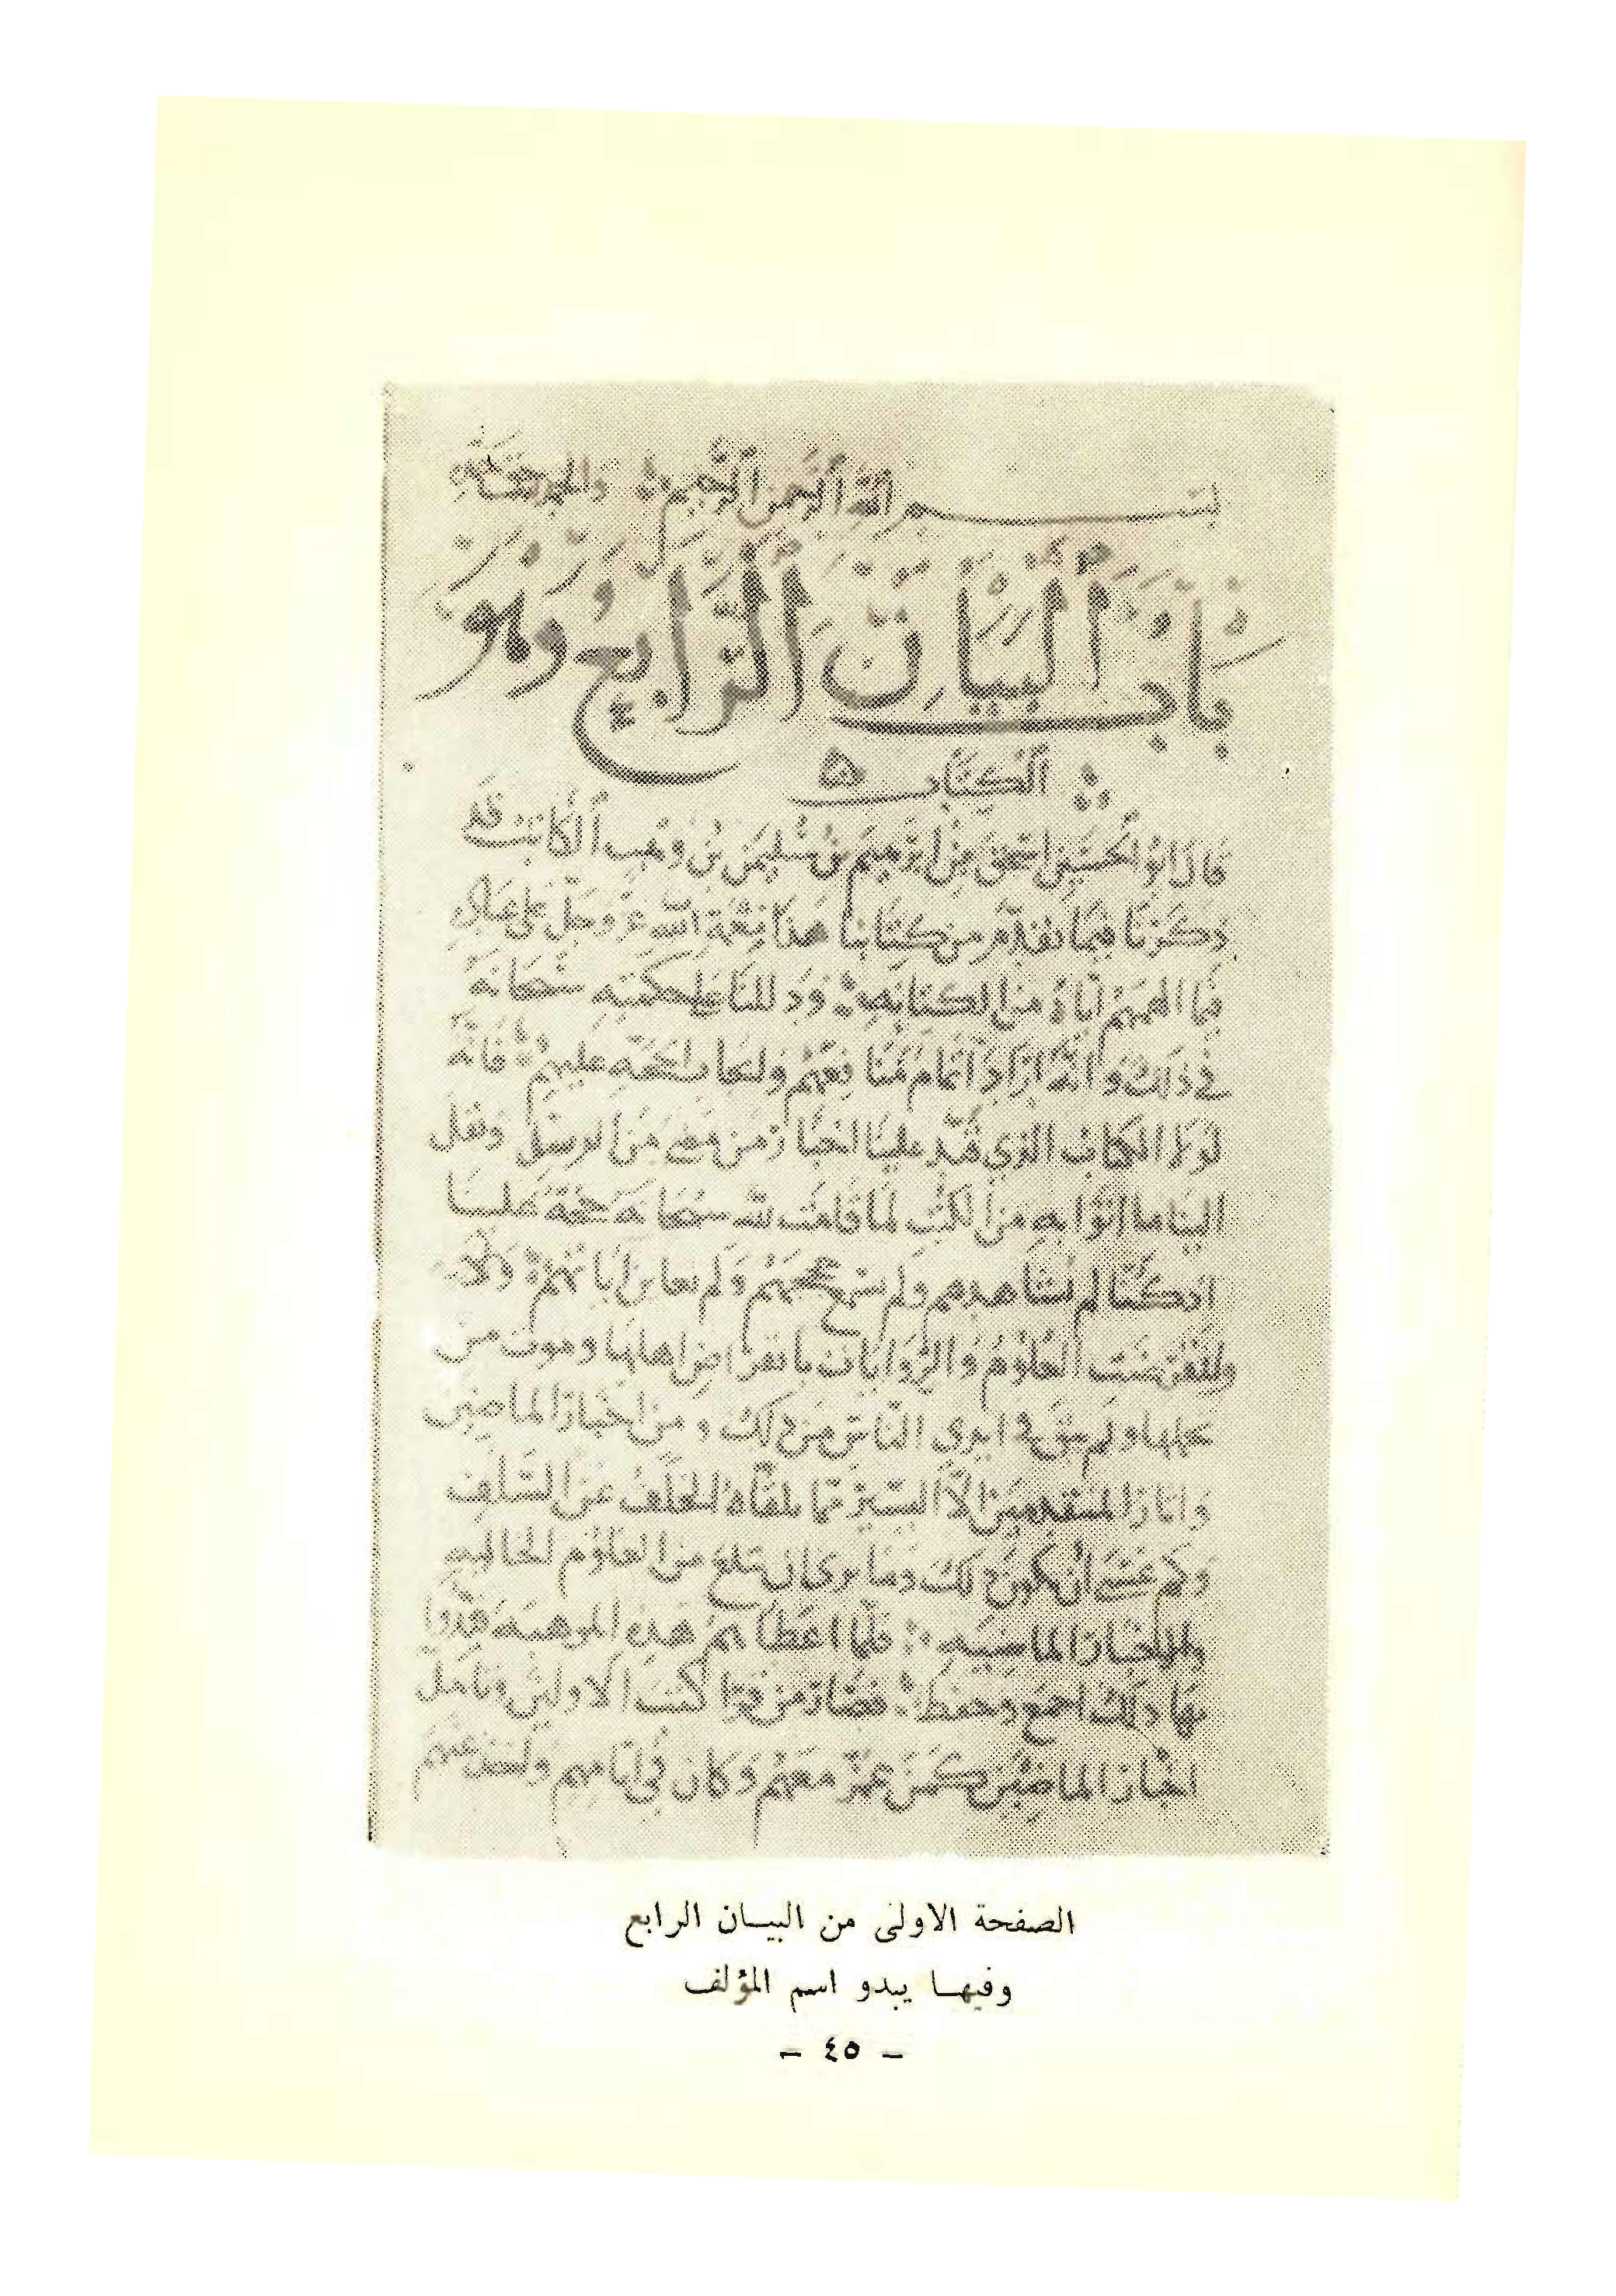 بسم الله الرحمن الرحيم والحمد لله
باب البيان الرابع وهو
الكتاب
قال ابو الحسين اسحق بن ابرهيم بن سليمن بن وهب الكاتب قد
ذكرنا فيما تقدم من كتابنا هذا نعمة الله عز وجل على عباده
فيما الهمهم اياه من الكتابة ودللنا على حكمته سبحانه
في ذلك وانه اراد اتمام منافعهم الحجة عليهم فانه
لولا الكتاب الذي قيد علينا اخبار من مضى من الرسل ونقل
الينا ما اتوا به من الكتب لما قامت لله سبحانه حجة علينا
اذ كنا لم نشاهدهم ولم نسمع حججهم ولم نعاين اياتهم
العلوم والروايات بانقراض اهلها وموت من
تحملها ولم يبق في ايدي الناس من ذلك ومن اخبار الماضين
واثار المتقدمين الا اليسير مما تلقاه الخلف عن السلف
وكم عسى ان يكون ذلك وما ترى ان تبلغ من العلوم الخالية
والاخبار الماضية فلما اعطاهم هذه الموهبة قيدوا
بها ذلك اجمع وحفظ فصار من قرا كتب الاولين وتامل
اخبار الماضين كمن عمر معهم وكان في ايامهم
الصفحة الاولى من البيان الرابع
وفيها يبدو اسم المؤلف
- ٤٥ -